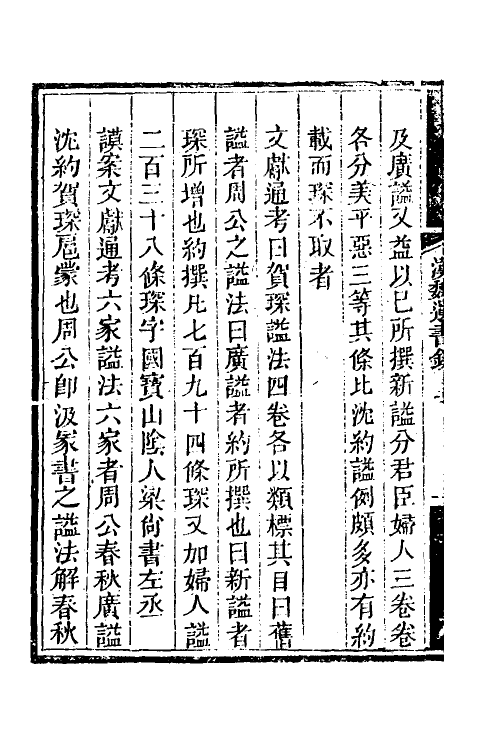 及廣謚又益以已所撰新謚分君臣婦人三卷卷
各分美平惡三等其條比沈約謚例頗多亦有約
載而琛不取者
文獻通考曰賀琛謚法四卷各以類標其目曰舊
謚者周公之謚法曰廣謚者約所撰也曰新謚者
琛所增也約撰凡七百九十四條琛又加婦人謚
二百三十八條琛字國寶山陰人梁尙書左丞
謨案文獻通考六家謚法六家者周公春秋廣謚
沈約賀琛扈蒙也周公卽汲冢書之謚法解春秋
漢魏遺書鈔